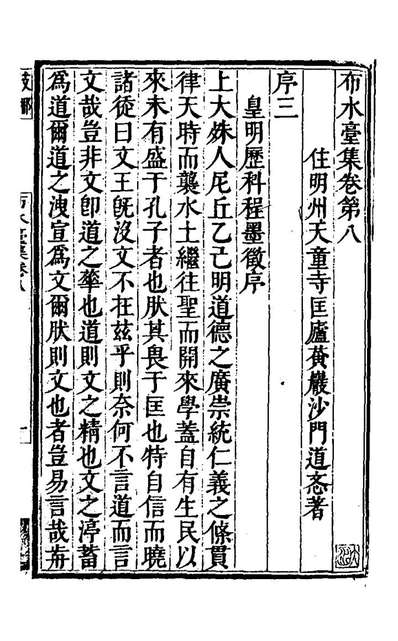 布水臺集卷第八
住明州天童寺匡廬黃巖沙門道忞著
序三
皇明歷科程墨徵序
上大姝人尼丘乙己明道德之廣崇統仁義之條貫
律天時而襲水土繼往聖而開來學蓋自有生民以
來未有盛于孔子者也肰其畏于匡也特自信而曉
諸徒曰文王旣沒文不在兹乎則奈何不言道而言
文哉豈非文卽道之華也道則文之精也文之渟蓄
爲道爾道之洩宣爲文爾肰則文也者豈易言哉